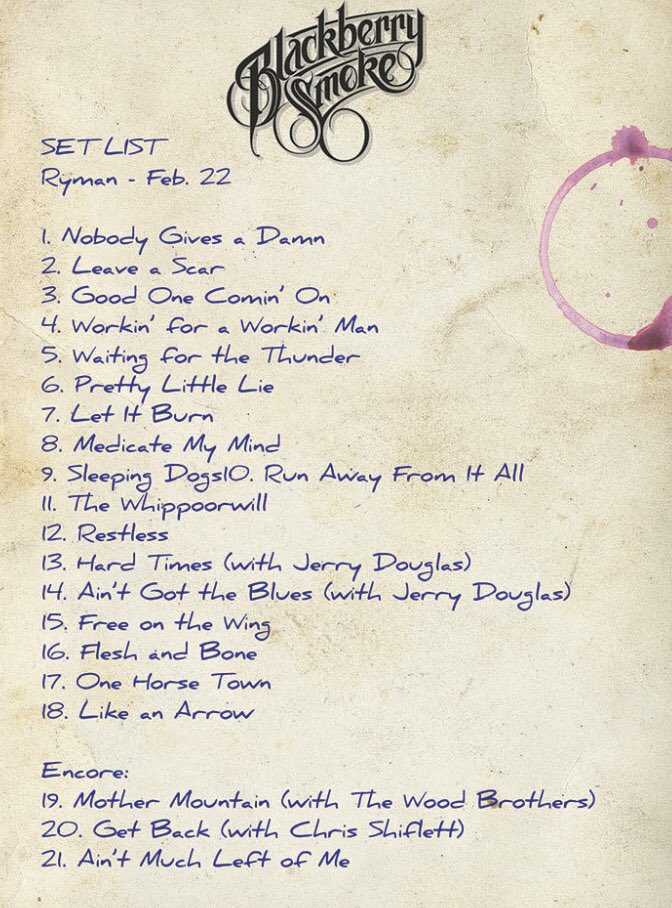 Blackberry
Smoke
SET LIST
Ryman - Feb. 22
1. Nobody Gives a Damn
2. Leave a Scar
3. Good One Comin' On
4. Workin' for a Workin' Man
5. Waiting for the Thunder
6. Pretty Little Lie
7. Let It Burn
8. Medicate My Mind
9. Sleeping Dogs10. Run Away From It All
11. The Whippoorwill
12. Restless
13. Hard Times (with Jerry Douglas)
14. Ain't Got the Blues (with Jerry Douglas)
15. Free on the Wing
16. Flesh and Bone
17. One Horse Town
18. Like an Arrow
Encore:
19. Mother Mountain (with The Wood Brothers)
20. Get Back (with Chris Shiflett)
21. Ain't Much Left of Me